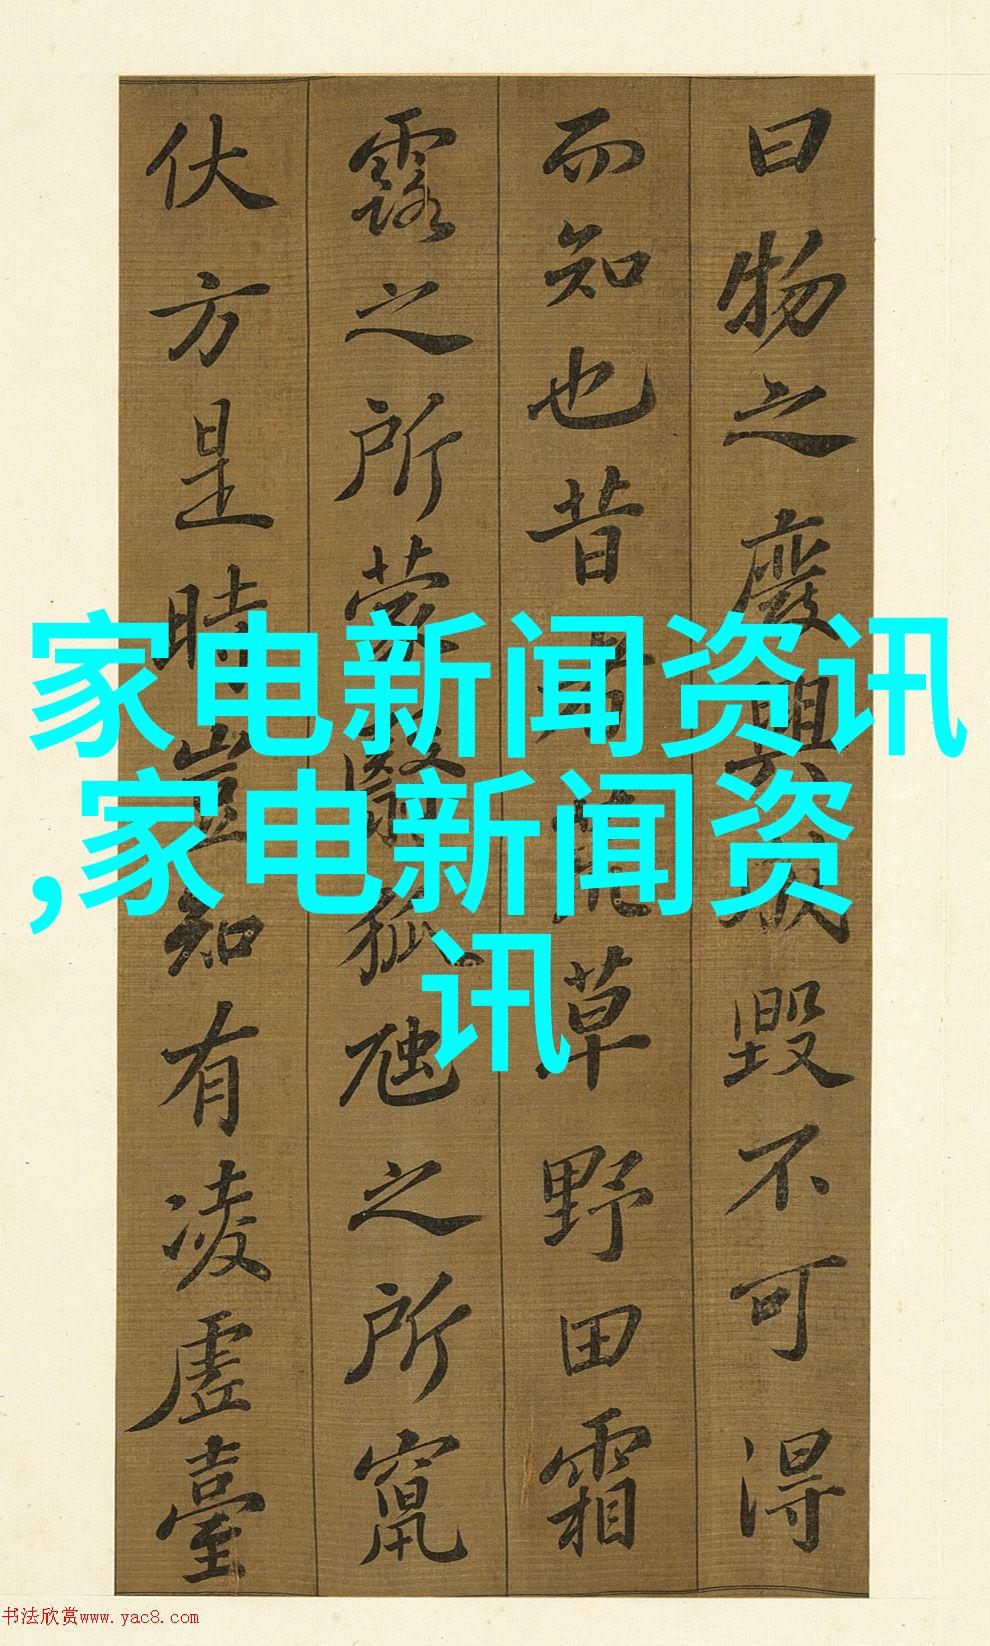 曰物之廢興成毀不可得
而知也昔者荒草野田霜
露之所蒙翳狐虺之所竄
伏方是時豈知有凌虛臺
家电新闻资讯
,家电新闻资
讯
书法欣赏www.yac8.com